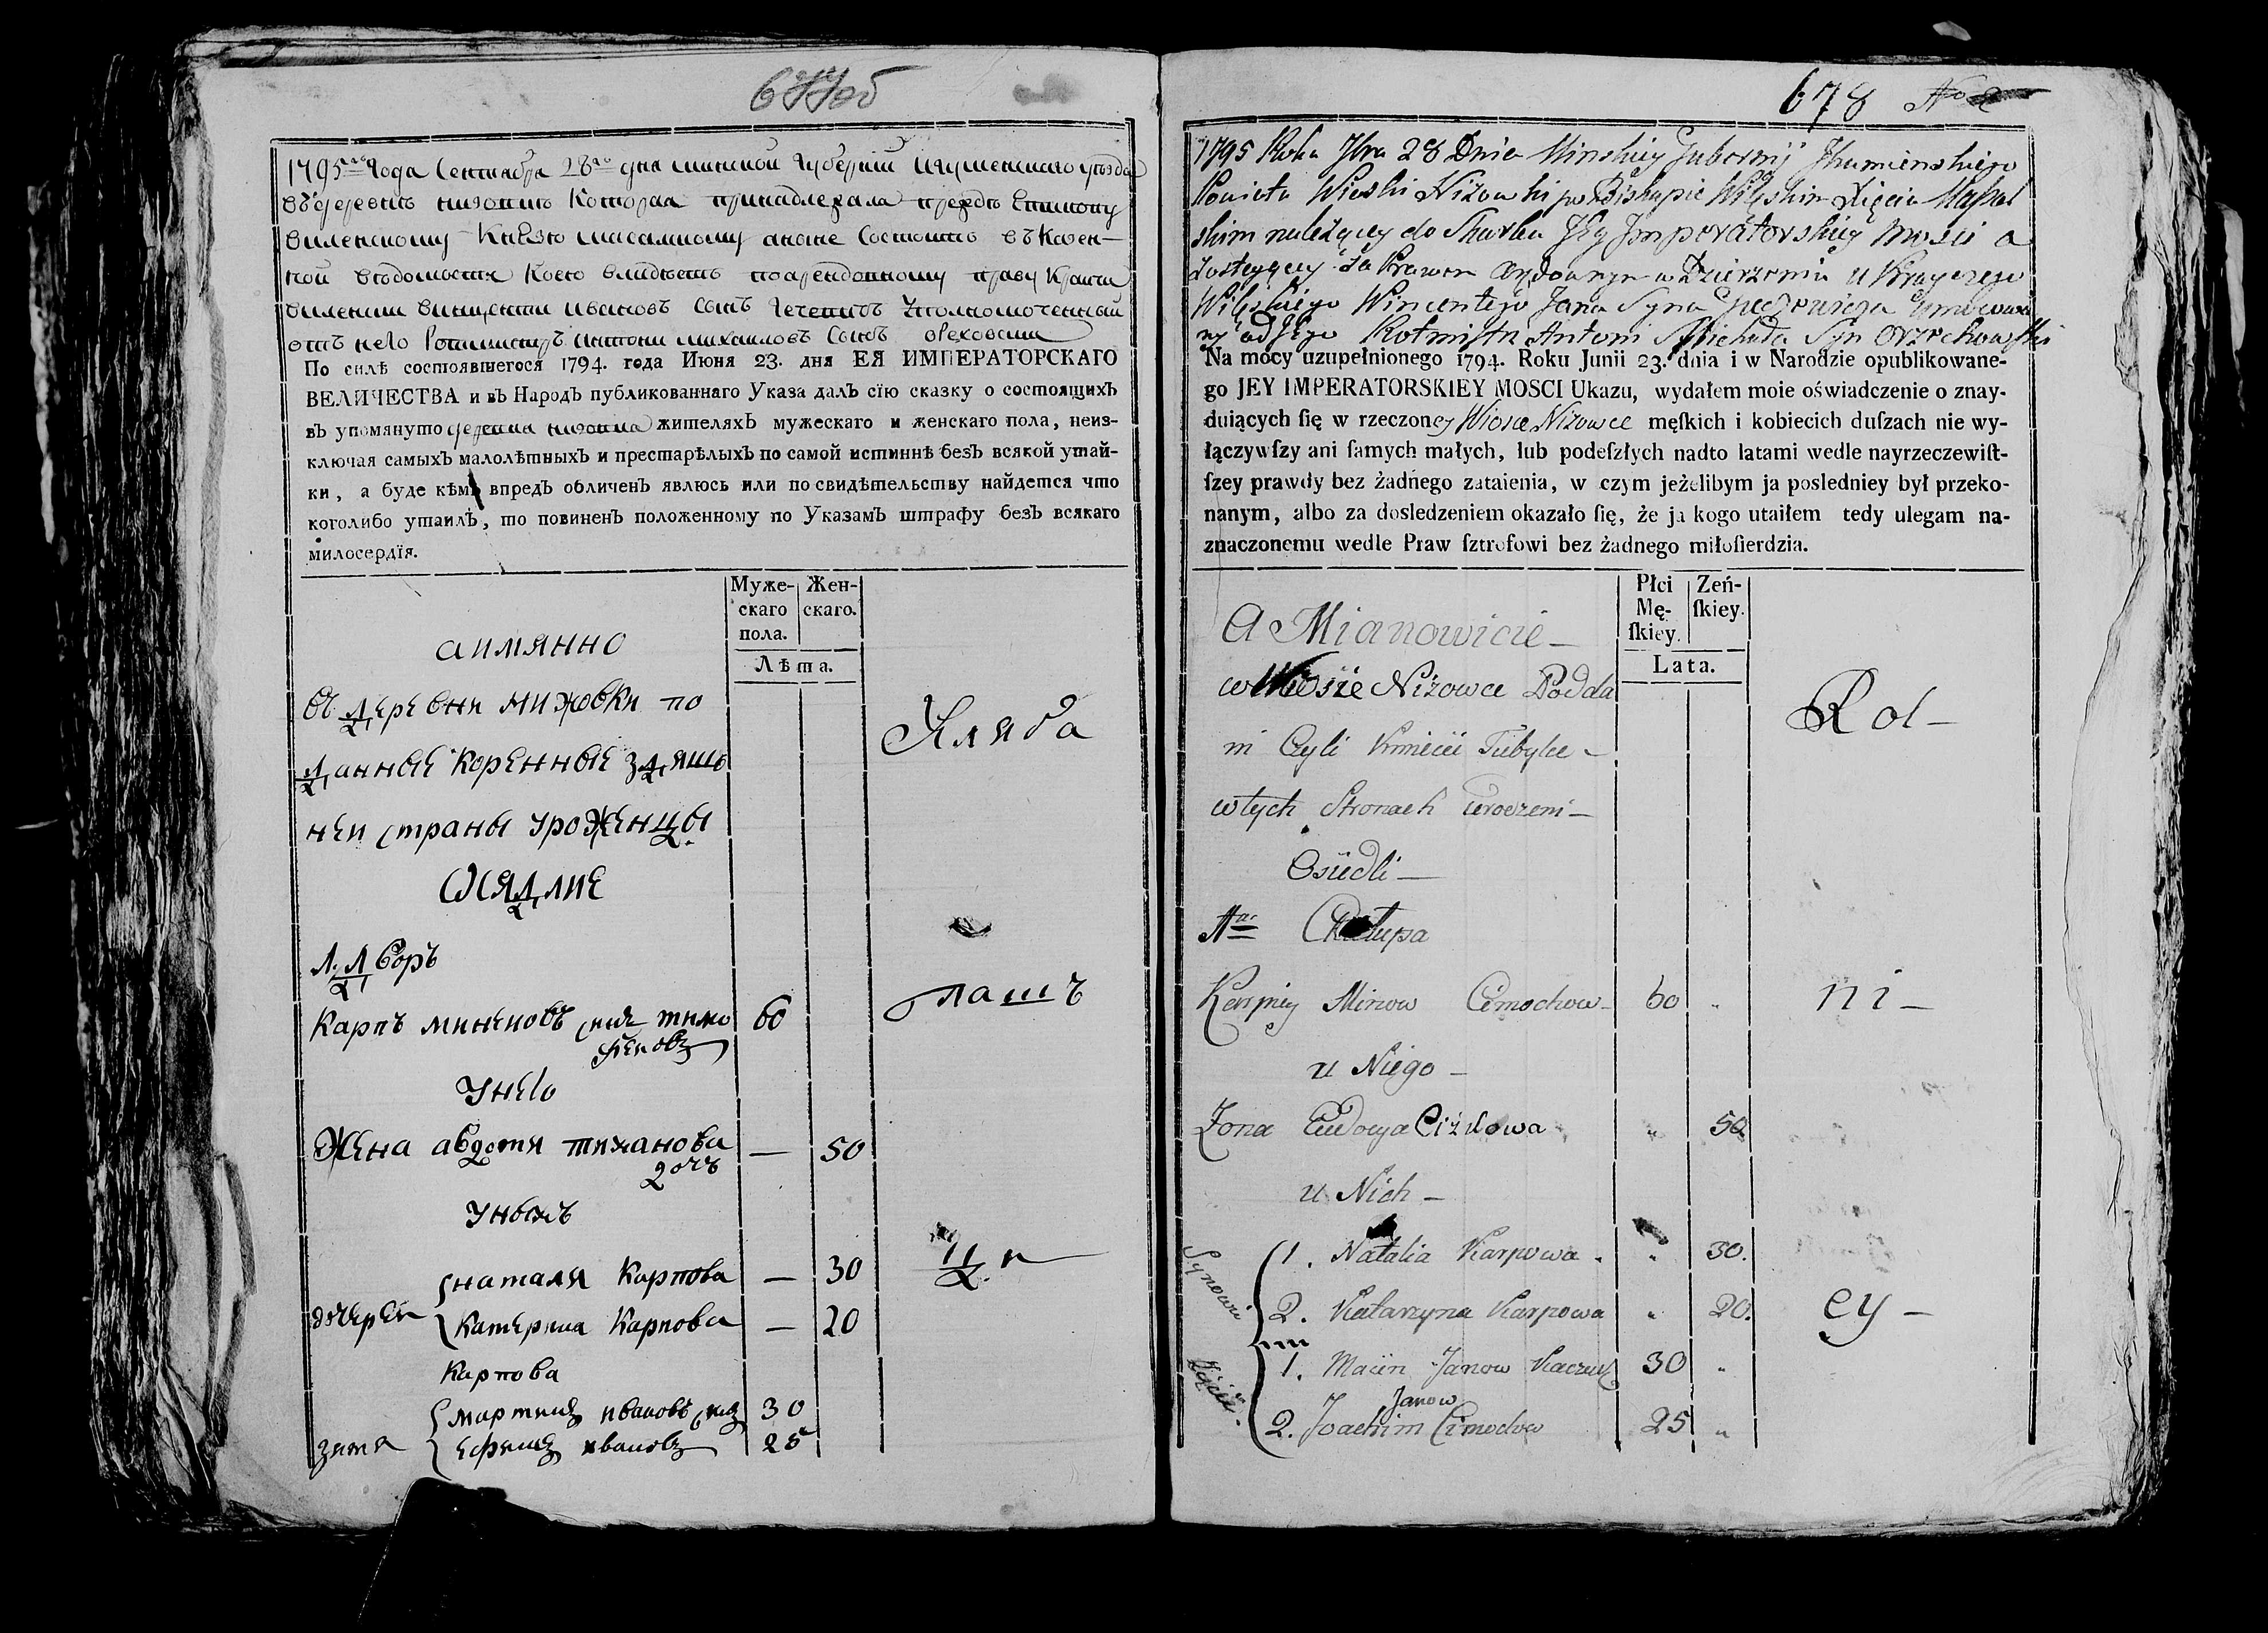 677об
1795го года Сентября 28го дня минской губернии игуменскаго уезда
въ деревне нижовки которая принадлежала преждѣ Епископу
виленскому Князю масалскому аныне Состоитъ въ Казен-
ной вѣдомости коею владѣетъ поарендовному праву
виленски винценти ивановъ сынъ уполномоченный
отъ него Ротмистръ антони михаиловъ Сынъ ореховски
По силѣ состоявшегося 1794. года Июня 23. дня ЕЯ ИМПЕРАТОРСКАГО
ВЕЛИЧЕСТВА и въ Народъ публикованнаго Указа далъ сїю сказку о состоящихъ
въ упомянуто деревни нижовки жителяхъ мужескаго и женскаго пола, неиз-
ключая самыхъ малолѣтныхъ и престарѣлыхъ по самой истиннѣ безъ всякой утай-
ки, а буде кѣмъ впредъ обличенъ явлюсь или по свидѣтельству найдется что
коголибо утаилъ, то повиненъ положенному по Указамъ штрафу безъ всякаго
милосердїя.
Муже-
скаго
пола.
Жен-
скаго.
Лѣта.
аимянно
въ деревни нижовки по
данные коренные здяшъ
неи страны уроженцы
осядлие
Хляба
1. Дворъ
Карпъ миненовъ синъ тимо
феновъ 60
пашъ
унего
Жена авдотя тиханова
дочъ — 50
Уныхъ
дочерен
наталя Карпова — 30
Катерина Карпова — 20
ци
Карпова
зятя
мартинъ ивановъ синъ 30
ефимъ ивановъ 25
678 No 2
1795 Roku 7bra 28 Dnia Minskiey Gubernij Jhumienskiego
Powiatu Wioski Niżowki po Biskupie Wilęskim Xięciu Massal
skim należącey do Skarbu Jey Jmperatorskiey Mosci a
zostaiącey za Prawem Arędownym w Dzierżeniu u Krayczego
Wilęskiego Wincentego Jana Syna Umocowa
ny od Jego Rotmistrz Antoni Michała Syn Orzechowski
Na mocy uzupełnionego 1794. Roku Junii 23. dnia i w Narodzie opublikowane-
go JEY IMPERATORSKIEY MOSCI Ukazu, wydałem moie oświadczenie o znay-
duiących ſię w rzeczoney Wiosce Niżowce męſkich i kobiecich duſzach nie wy-
łączywſzy ani ſamych małych, lub podeſzłych nadto latami wedle nayrzeczewiſt-
ſzey prawdy bez żadnego zataienia, w czym jeżelibym ja posledniey był przeko-
nanym, albo za dosledzeniem okazało ſię, że ja kogo utaiłem tedy ulegam na-
znaczonemu wedle Praw ſztrofowi bez żadnego miłoſierdzia.
Płci
Mę-
ſkiey.
Zeń-
ſkiey.
Lata.
A Mianowicie —
w Wiosie Niżowce Podda
ni Czyli Kmiecii Tubylce —
w tych Stronach urodzeni —
Osiedli —
Rol —
Na Chałupa
Karpiey Minow Cimochow — 60 "
ni —
u Niego —
Zona Eudocya Cizilowa " 50
u Nich —
Synowi
1. Natalia Karpowa " 30.
2. Katarzyna Karpowa " 20.
ey —
Zięcie.
1. Macin Janow 30 "
Janow
2. Joachim Cimochow 25 "